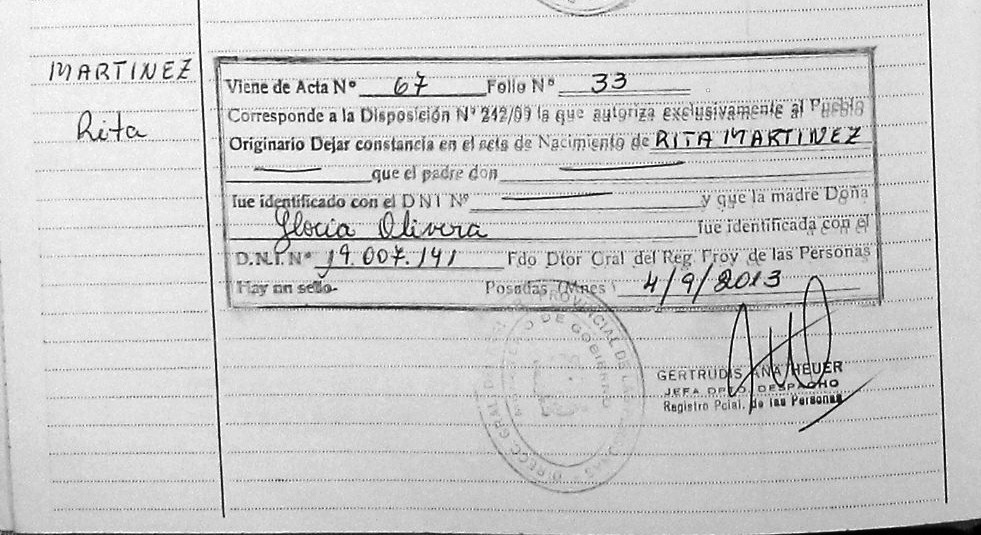 MARTINEZ
Rita
Viene de Acta Nº 67 Folio Nº 33
Corresponde a la Disposición Nº 242/09 la que autoriza exclusivamente al Pueblo
Originario Dejar constancia en el acta de Nacimiento de RITA MARTINEZ
que el padre don
fue identificado con el DNI Nº y que la madre Doña
Gloria Olivera fue identificada con el
D.N.I. Nº 19.007.141 Fdo Dtor Gral del Reg. Prov de las Personas
Hay un sello- Posadas (Mnes) 4/9/2013
PROVINCIAL DE
DE GOBIERNO
DIRECC GRAL
GERTRUDIS ANA HEUER
JEFA DPTO. DESPACHO
Registro Pcial. de las Personas